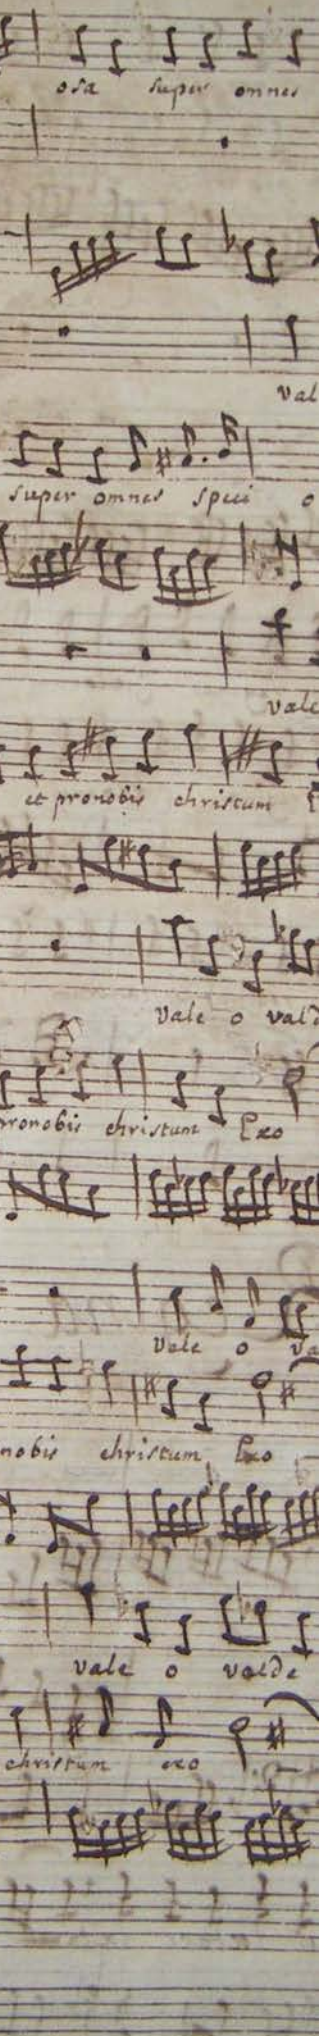 osa super omnes
val
super omnes speci o
vale
et pronobis christum
vale o valde
pronobis christum Exo
Vale o va
nobis christum Exo
vale o valde
christum exo